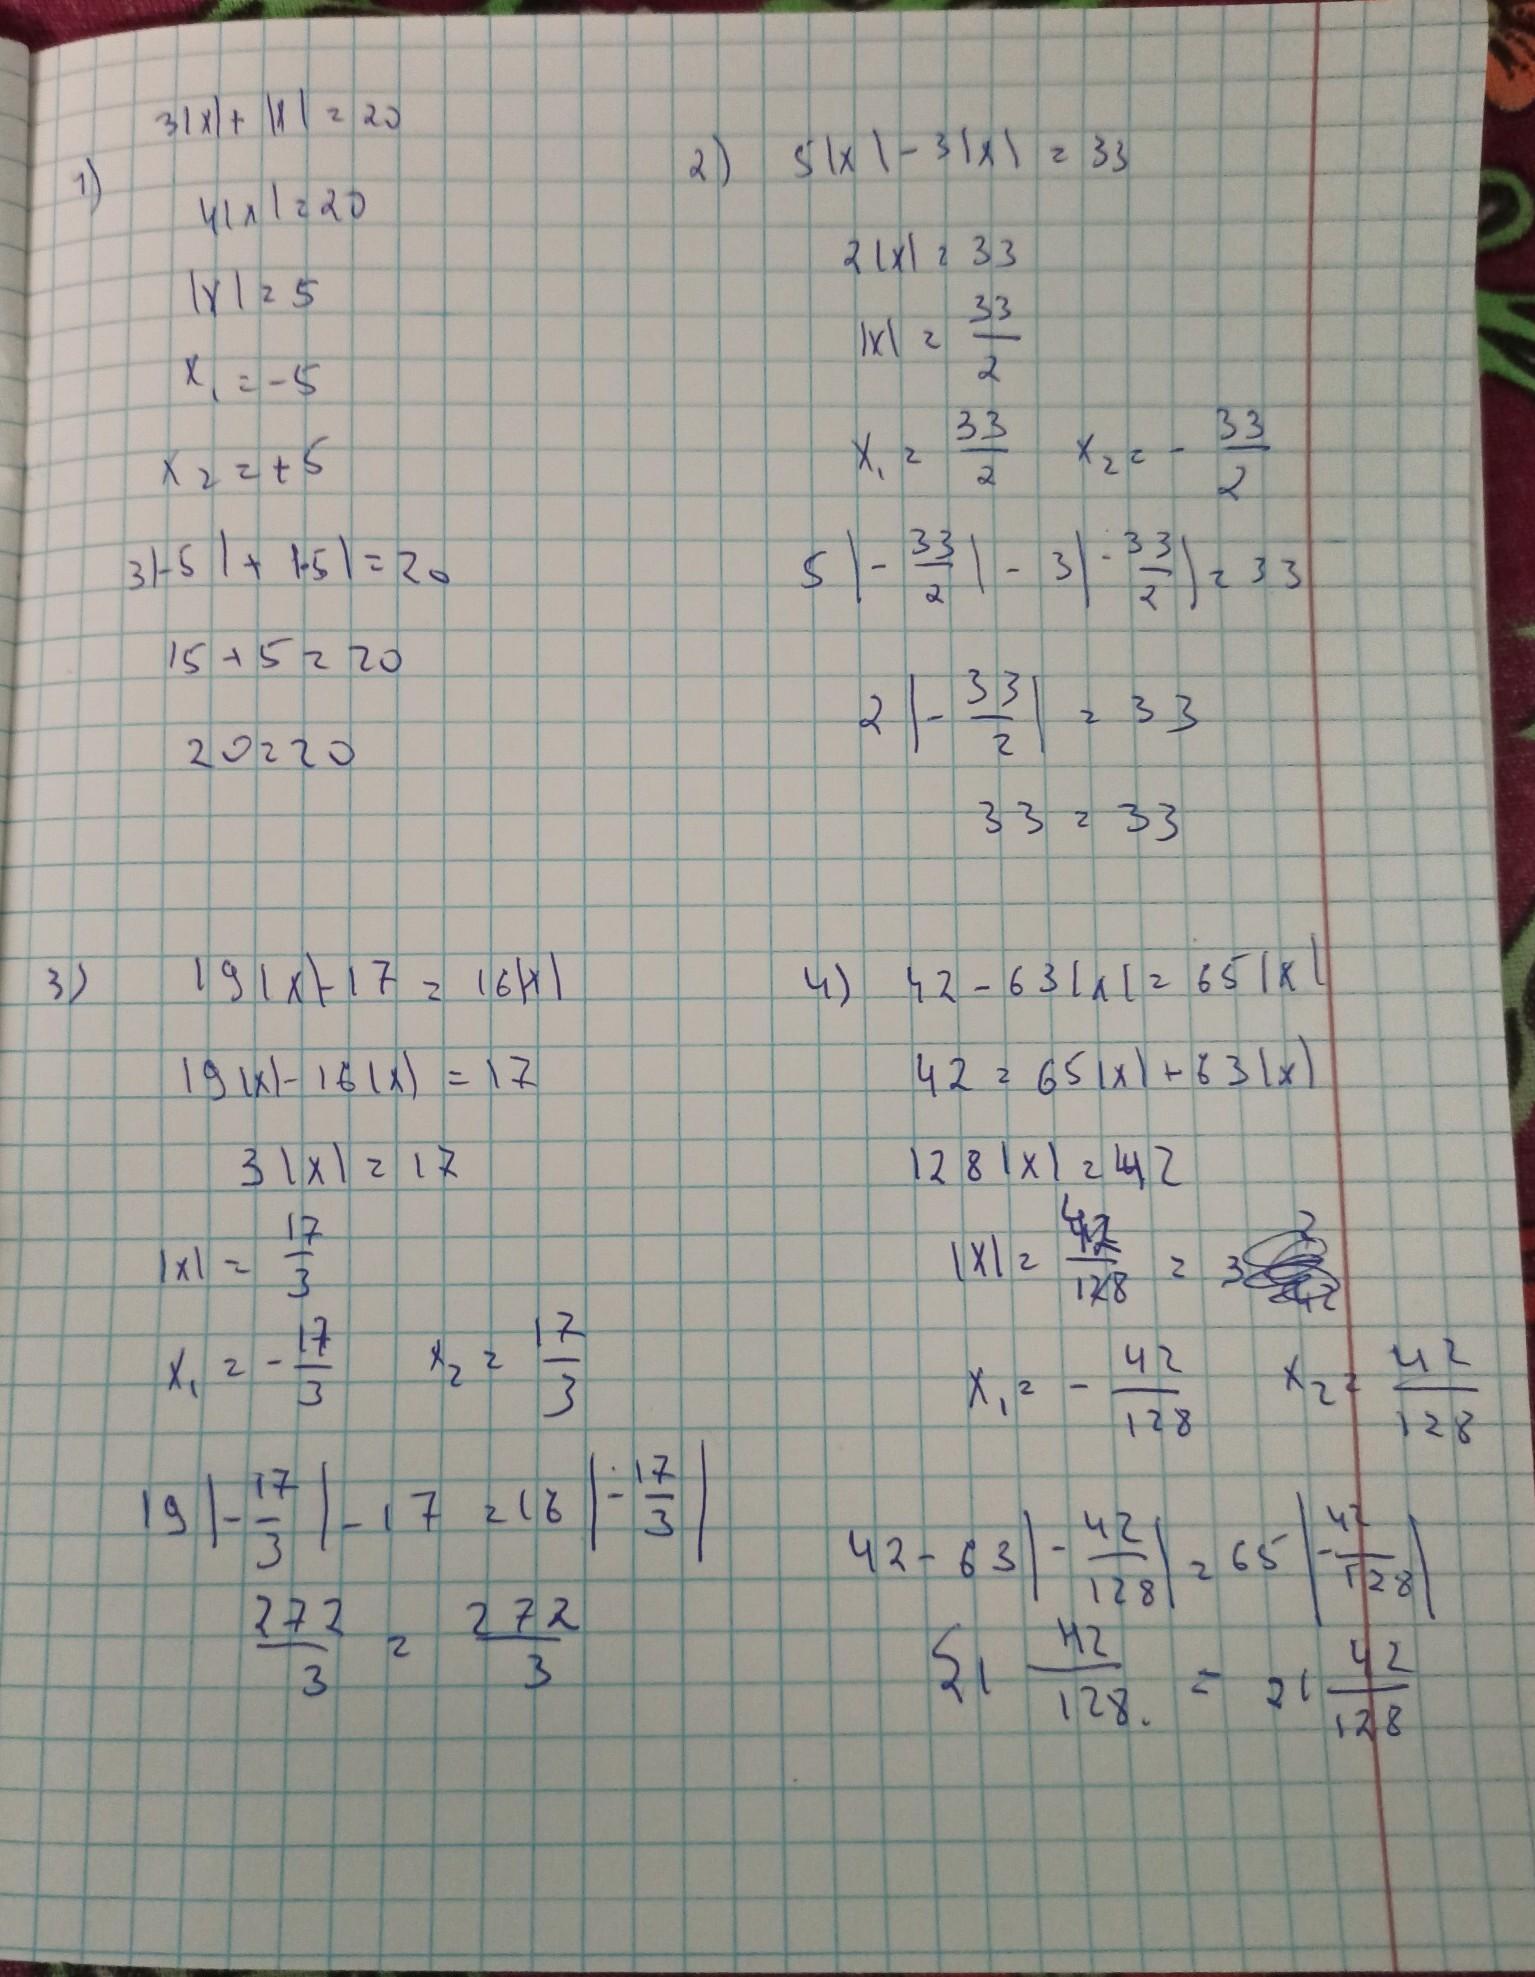 1)
3|x| + |x| = 20
4|x| = 20
|x| = 5
x₁ = -5
x₂ = +5
3|-5| + |-5| = 20
15 + 5 = 20
20 = 20
2) 5|x| - 3|x| = 33
2|x| = 33
|x| = 33/2
x₁ = 33/2 x₂ = - 33/2
5|- 33/2| - 3|- 33/2| = 33
2|- 33/2| = 33
33 = 33
3) 19|x| - 17 = 16|x|
19|x| - 16|x| = 17
3|x| = 17
|x| = 17/3
x₁ = - 17/3 x₂ = 17/3
19|- 17/3| - 17 = 16|- 17/3|
272/3 = 272/3
4) 42 - 63|x| = 65|x|
42 = 65|x| + 63|x|
128|x| = 42
|x| = 42/128 = 3
x₁ = - 42/128 x₂ = 42/128
42 - 63|- 42/128| = 65|- 42/128|
21 42/128 = 21 42/128